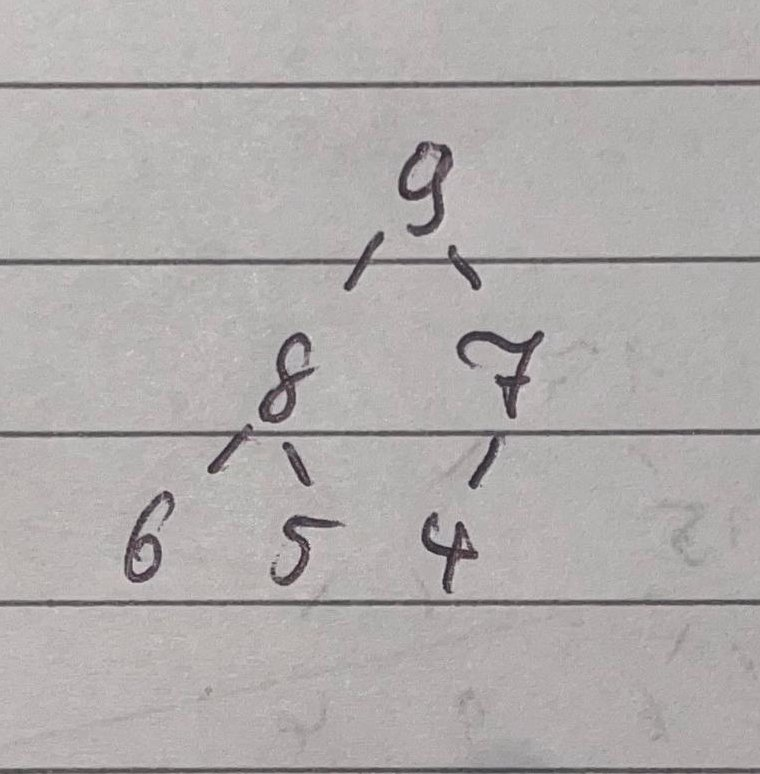 9
8 7
6 5 4